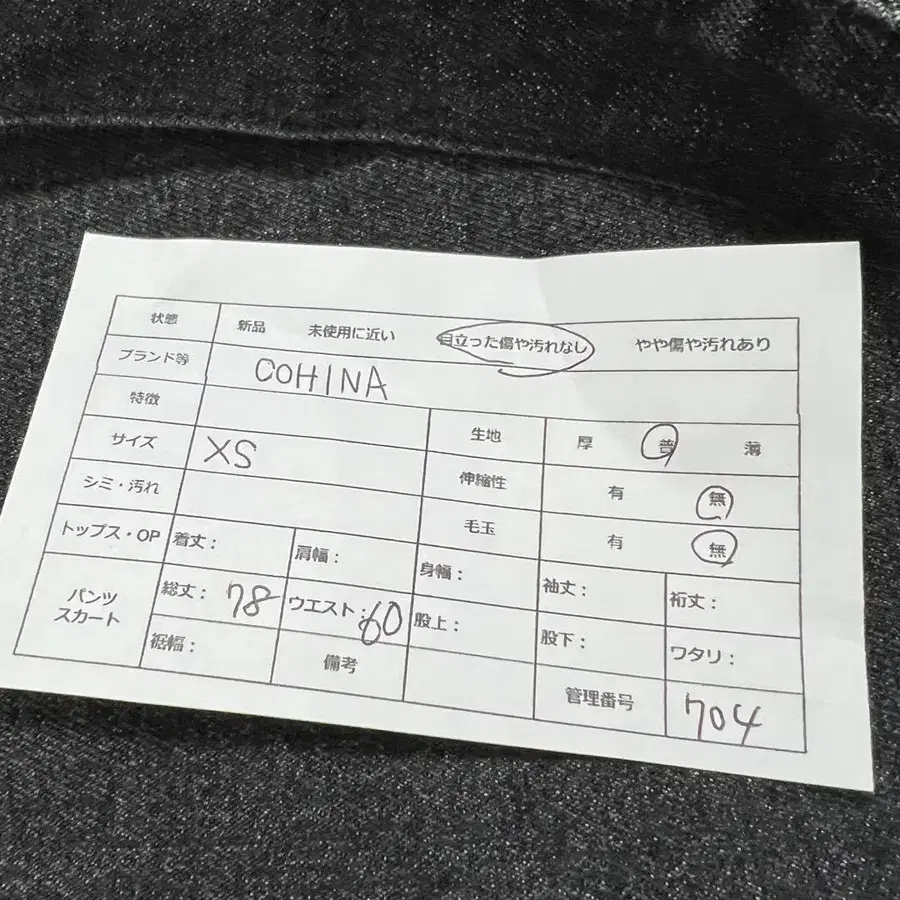 状態 新品 未使用に近い 目立った傷や汚れなし やや傷や汚れあり
ブランド等 COHINA
特徴 生地 厚 普 薄
サイズ XS 伸縮性 有 無
シミ・汚れ 毛玉 有 無
トップス・OP 着丈: 肩幅: 身幅: 袖丈: 裄丈:
パンツ スカート 総丈: 78 ウエスト: 60 股上: 股下: ワタリ:
裾幅: 備考 管理番号 704